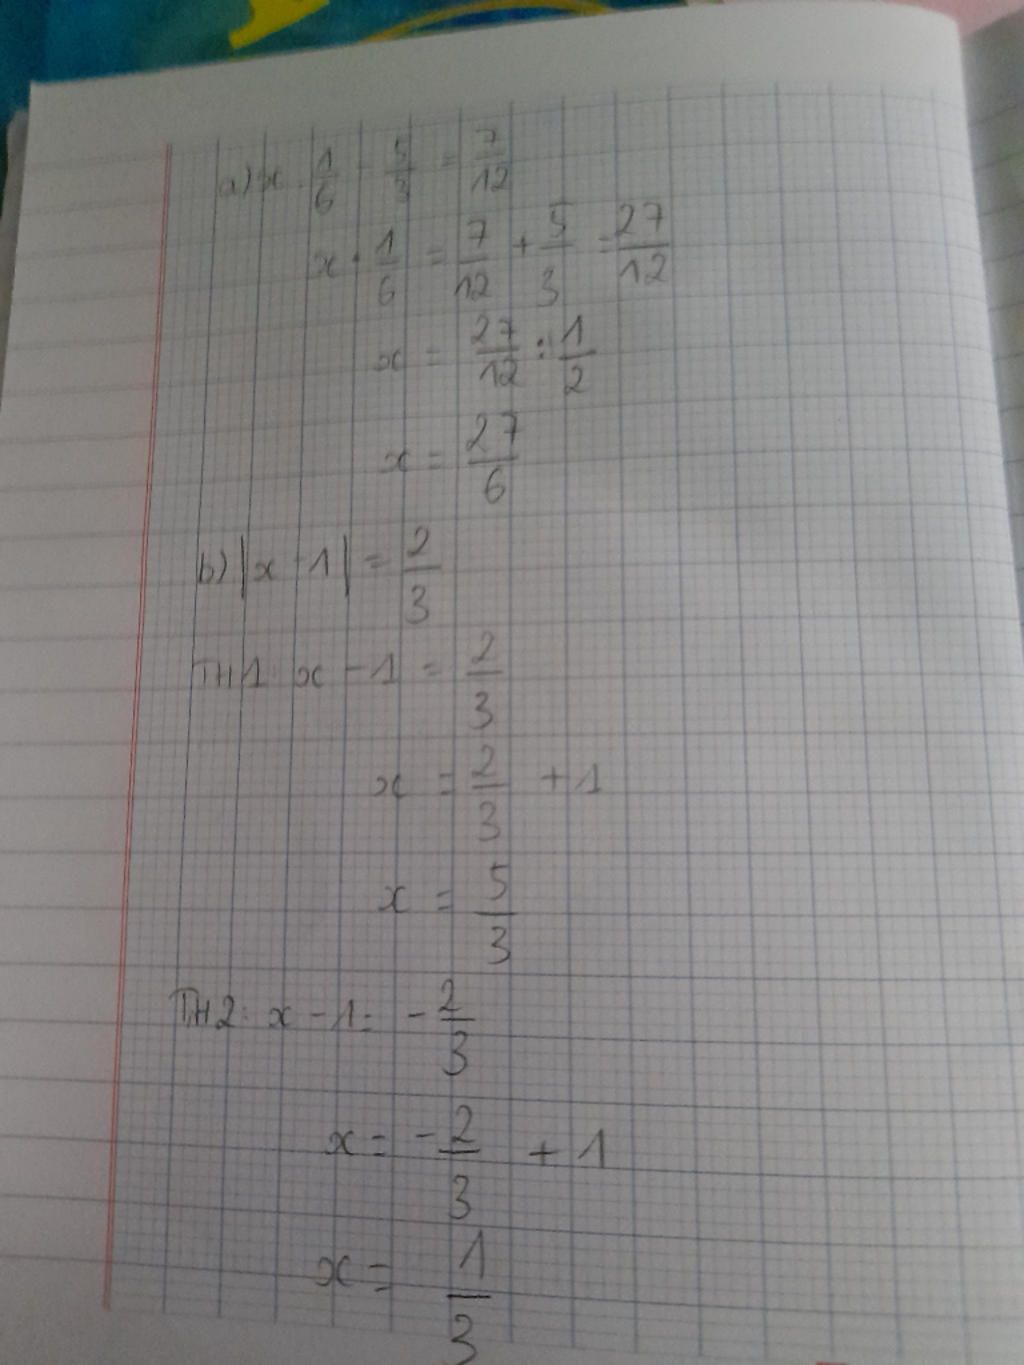 a) x . 1/6 - 5/3 = 7/12
x . 1/6 = 7/12 + 5/3 = 27/12
x = 27/12 : 1/2
x = 27/6
b) |x - 1| = 2/3
TH1: x - 1 = 2/3
x = 2/3 + 1
x = 5/3
TH2: x - 1 = - 2/3
x = - 2/3 + 1
x = 1/3